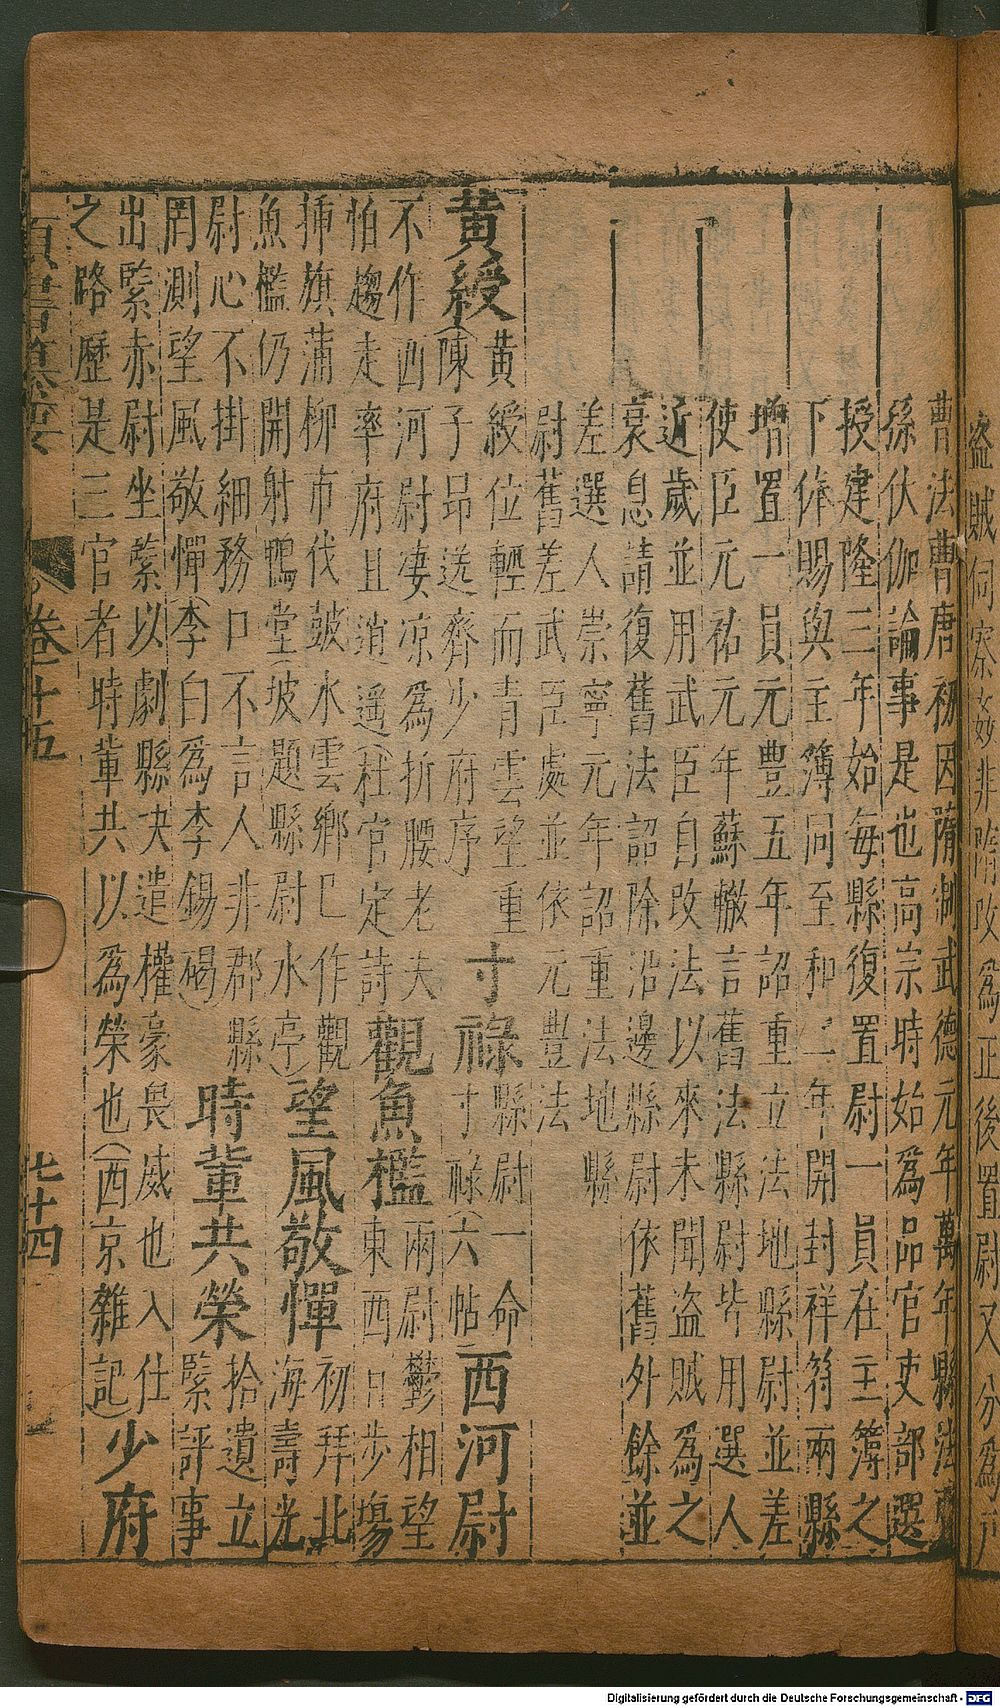 盜賊伺察姦非隋改爲正後置尉又分爲戶
曹法曹唐初因隋制武德元年萬年縣法曹
孫伏伽論事是也高宗時始爲品官吏部選
授建隆三年始每縣復置尉一員在主簿之
下俸賜與主簿同至和二年開封祥符兩縣
增置一員元豐五年詔重立法地縣尉並差
使臣元祐元年蘇轍言舊法縣尉皆用選人
近歲並用武臣自改法以來未聞盜賊爲之
衰息請復舊法詔除沿邊縣尉依舊外餘並
差選人崇寧元年詔重法地縣
尉舊差武臣處並依元豐法
黃綬
黃綬位輕而青雲望重
(陳子昂送齊少府序
寸祿
縣尉一命
寸祿(六帖
西河尉
不作西河尉淒凉爲折腰老夫
怕趨走率府且逍遥(杜官定詩
觀魚檻
兩尉鬱相望
東西日步塲
揷旗蒲柳市伐鼓水雲鄉已作觀
魚檻仍開射鴨堂(坡題縣尉水亭)
望風敬憚
初拜北
海壽光
尉心不掛細務口不言人非郡縣
罔測望風敬憚(李白爲李錫碣)
時輩共榮
拾遺立
緊評事
出緊赤尉坐縈以劇縣决遣權豪畏威也入仕
之路歷是三官者時輩共以爲榮也(西京雜記)
少府
卷十五
七十四
Digitalisierung gefördert durch die Deutsche Forschungsgemeinschaft - DFG